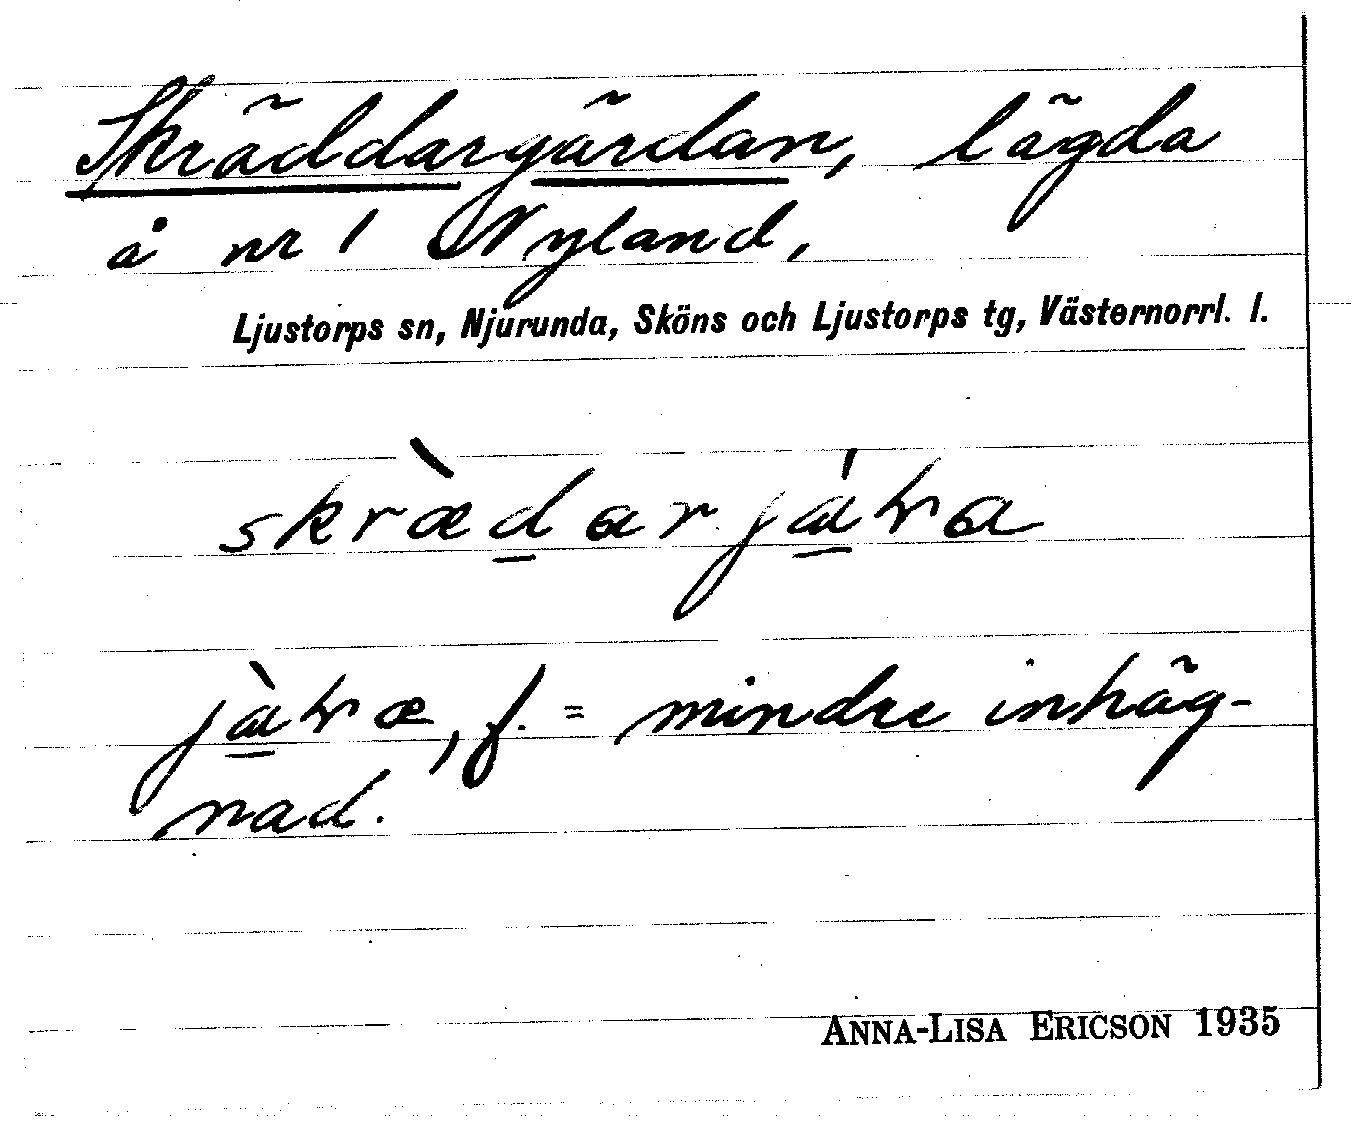 Skräddargärdan, lägda
å nr 1 Nyland,
Ljustorps sn, Njurunda, Sköns och Ljustorps tg, Västernorrl. l.
f. = mindre inhäg-
nad.
ANNA-LISA ERICSON 1935